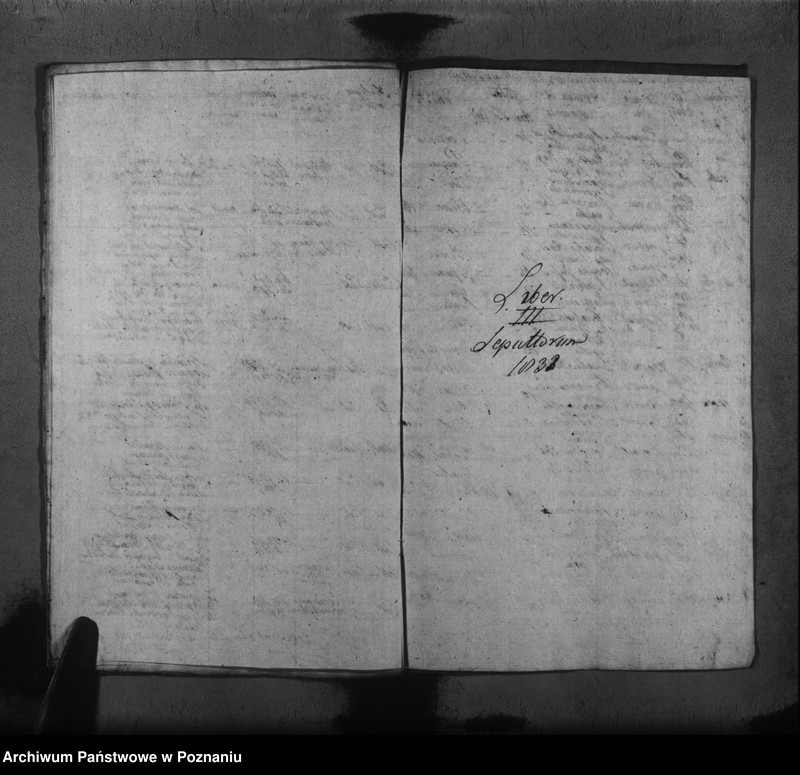 Liber
III
Sepultorum
1832
Archiwum Państwowe w Poznaniu